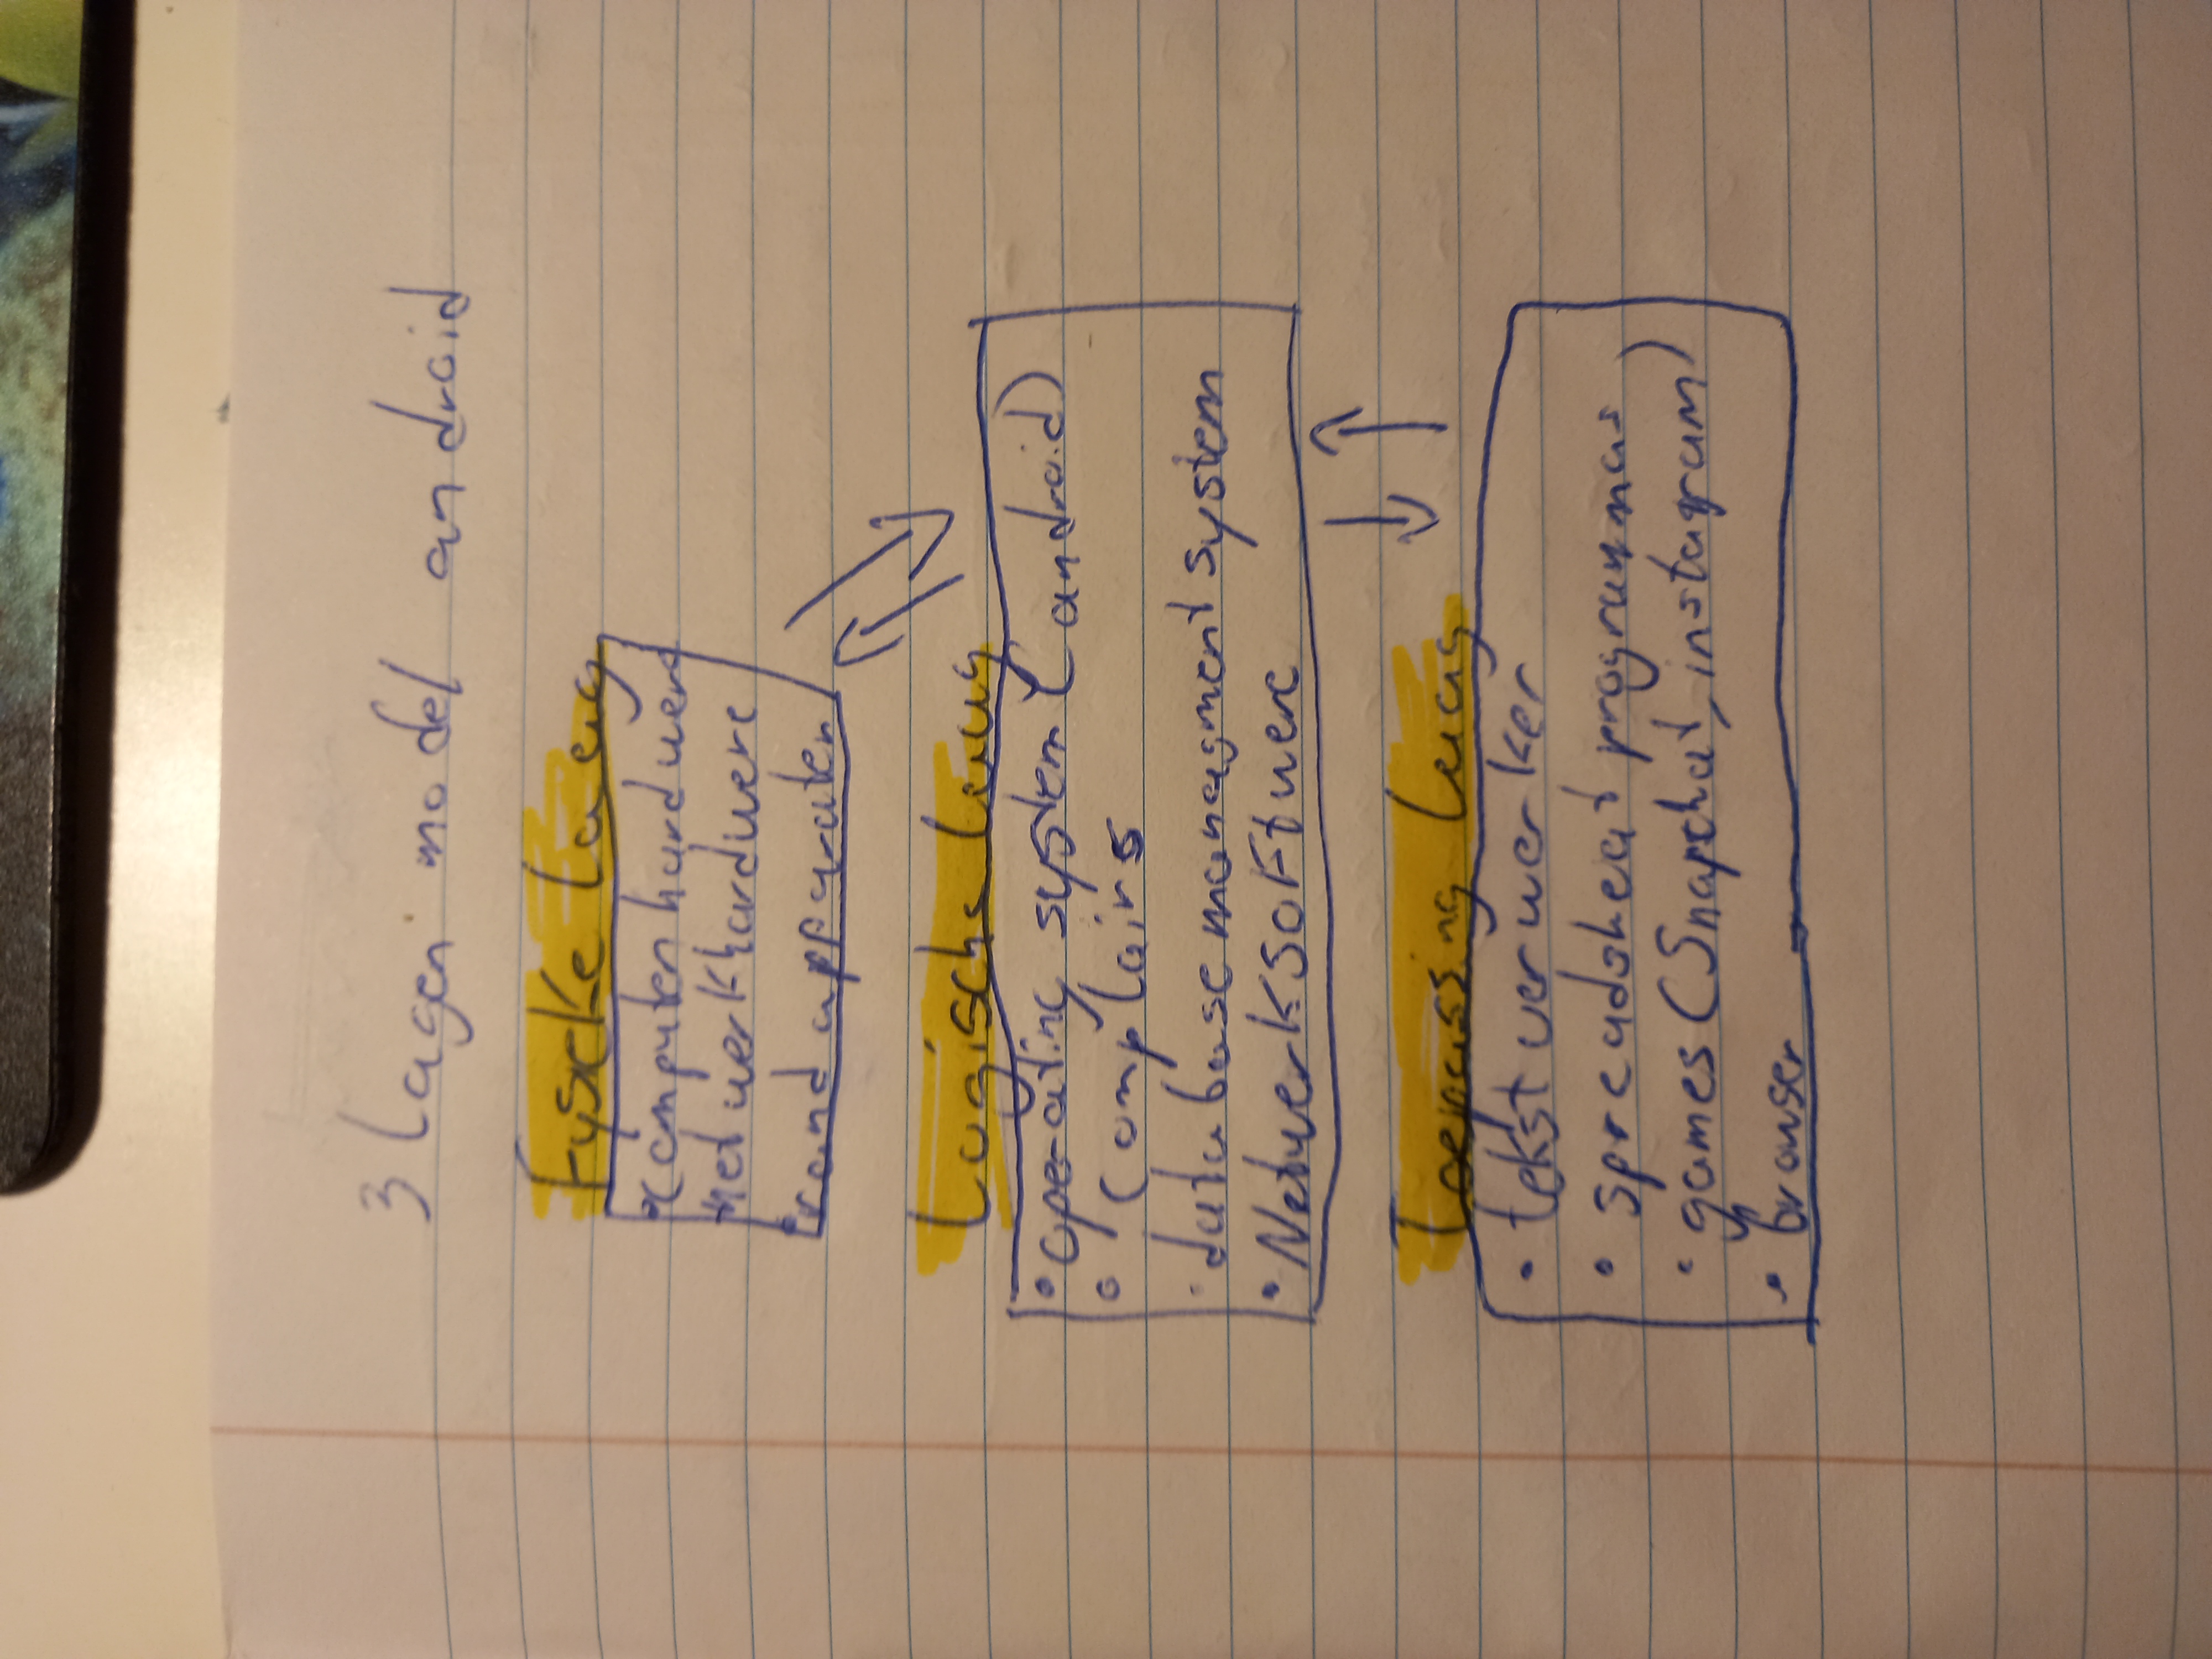 3 lagen model android
Fysieke laag
computer hardwere
netwerkhardwere
randapparaten
Logische laag
• operating system (android)
• complairs
• database managment system
• Netwerksoftwere
Toepassing laag
• tekstverwerker
• spreadsheat programmas
• games (Snapchat, instagram)
• browser